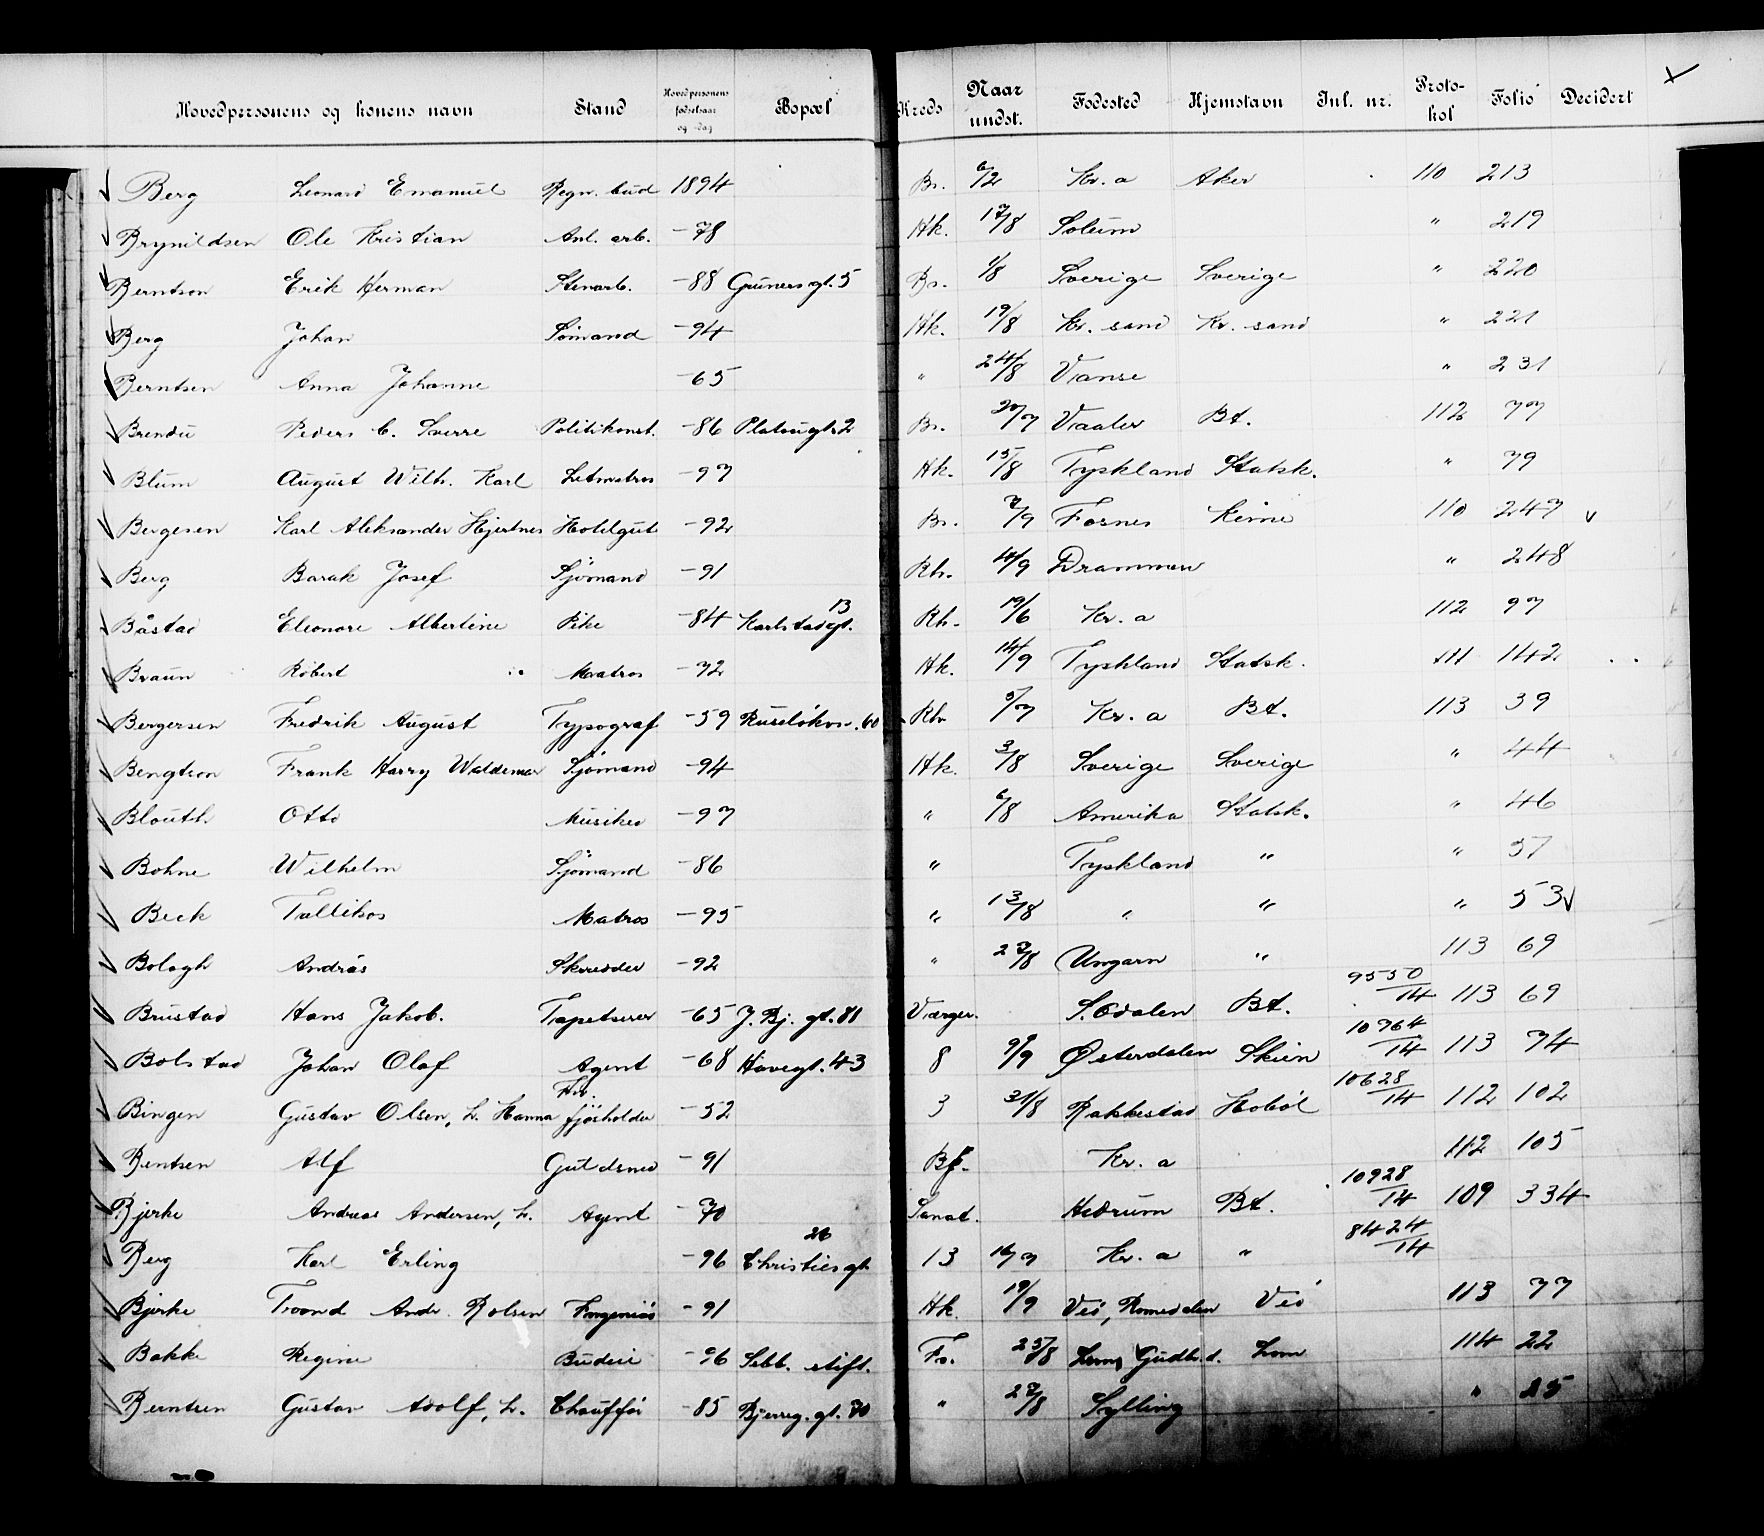 Hovedpersonens og konens navn Stand Hovedpersonens fødselsaar og -dag Bopæl Kreds Naar undst. Fødested Hjemstavn Inl. nr. Protokol Folio Decidert
Berg Leonard Emanuel Regn. bud 1894 Br. 6/2 Kr.a Aker 110 213
Brynildsen Ole Kristian Anl. arb. -78 Hk. 17/8 Solum " 219
Berntson Erik Herman Stenarb. -88 Grüners gt. 5 Br. 1/8 Sverige Sverige " 220
Berg Johan Sømand -94 Hk. 19/8 Kr. sand Kr. sand " 221
Berntsen Anna Johanne -65 " 24/8 Vanse " 231
Brendu Peders C. Sverre Politikonst. -86 Platougt. 2 Br. 20/7 Vaaler Bt. 112 77
Blum August Wilh. Karl Letmatros -97 Hk. 15/8 Tyskland Statsk. " 79
Bergesen Karl Aleksander Hjertnes Hotelgut -92 Br. 7/9 Fosnes 110 247 v
Berg Barak Josef Sjømand -91 Rh. 11/9 Drammen " 248
Båstad Eleonore Albertine Pike -84 Karlstadgt. 13 Rh. 19/6 Kr. a 112 97
Braun Robert Matros -72 Hk. 14/9 Tyskland Statsk. 111 142
Bergersen Fredrik August Typograf -59 Ruseløkv. 60 Rh. 3/7 Kr. a Bt. 113 39
Bengtson Frank Harry Waldemar Sjømand -94 Hk. 3/8 Sverige Sverige " 44
Blauth Otto Musiker -97 " 6/8 Amerika Statsk. " 46
Bohne Wilhelm Sjømand -86 " Tyskland " " 51
Beck Matros -95 " 13/8 " " " 53 v
Balogh András Skrædder -92 " 27/8 Ungarn " 113 69
Brustad Hans Jakob. Tapetserer -65 J. Bj. gt. 81 Værger. S. Odalen Bt. 9550/14 113 69
Bolstad Johan Olaf Agent -68 Havegt. 43 8 9/9 Østerdalen Skien 10764/14 113 74
Bingen Gustav Olsen, h. Hanna Fhv. fjøsholder -52 3 31/8 Rakkestad Hobøl 10628/14 112 102
Bentsen Alf Guldsmed -91 Kr. a 112 105
Bjerke Andreas Andersen, h. Agent -70 Sanat. Hedrum Bt. 10928/14 109 334
Berg Karl Erling -96 Christies gt. 26 13 16/7 Kr. a " 8424/14
Bjerke Troond Andr. Rolsen Ingeniør -91 Hk. 19/9 Veø, Romsdalen Veø 113 77
Bakke Regine Budeie -96 Sebb. stift. Fr. 25/8 Lom, Gudb.d. Lom 114 22
Berntsen Gustav Adolf, h. Chauffør -85 Bjerreg. gt. 70 " 27/8 Sylling " 25